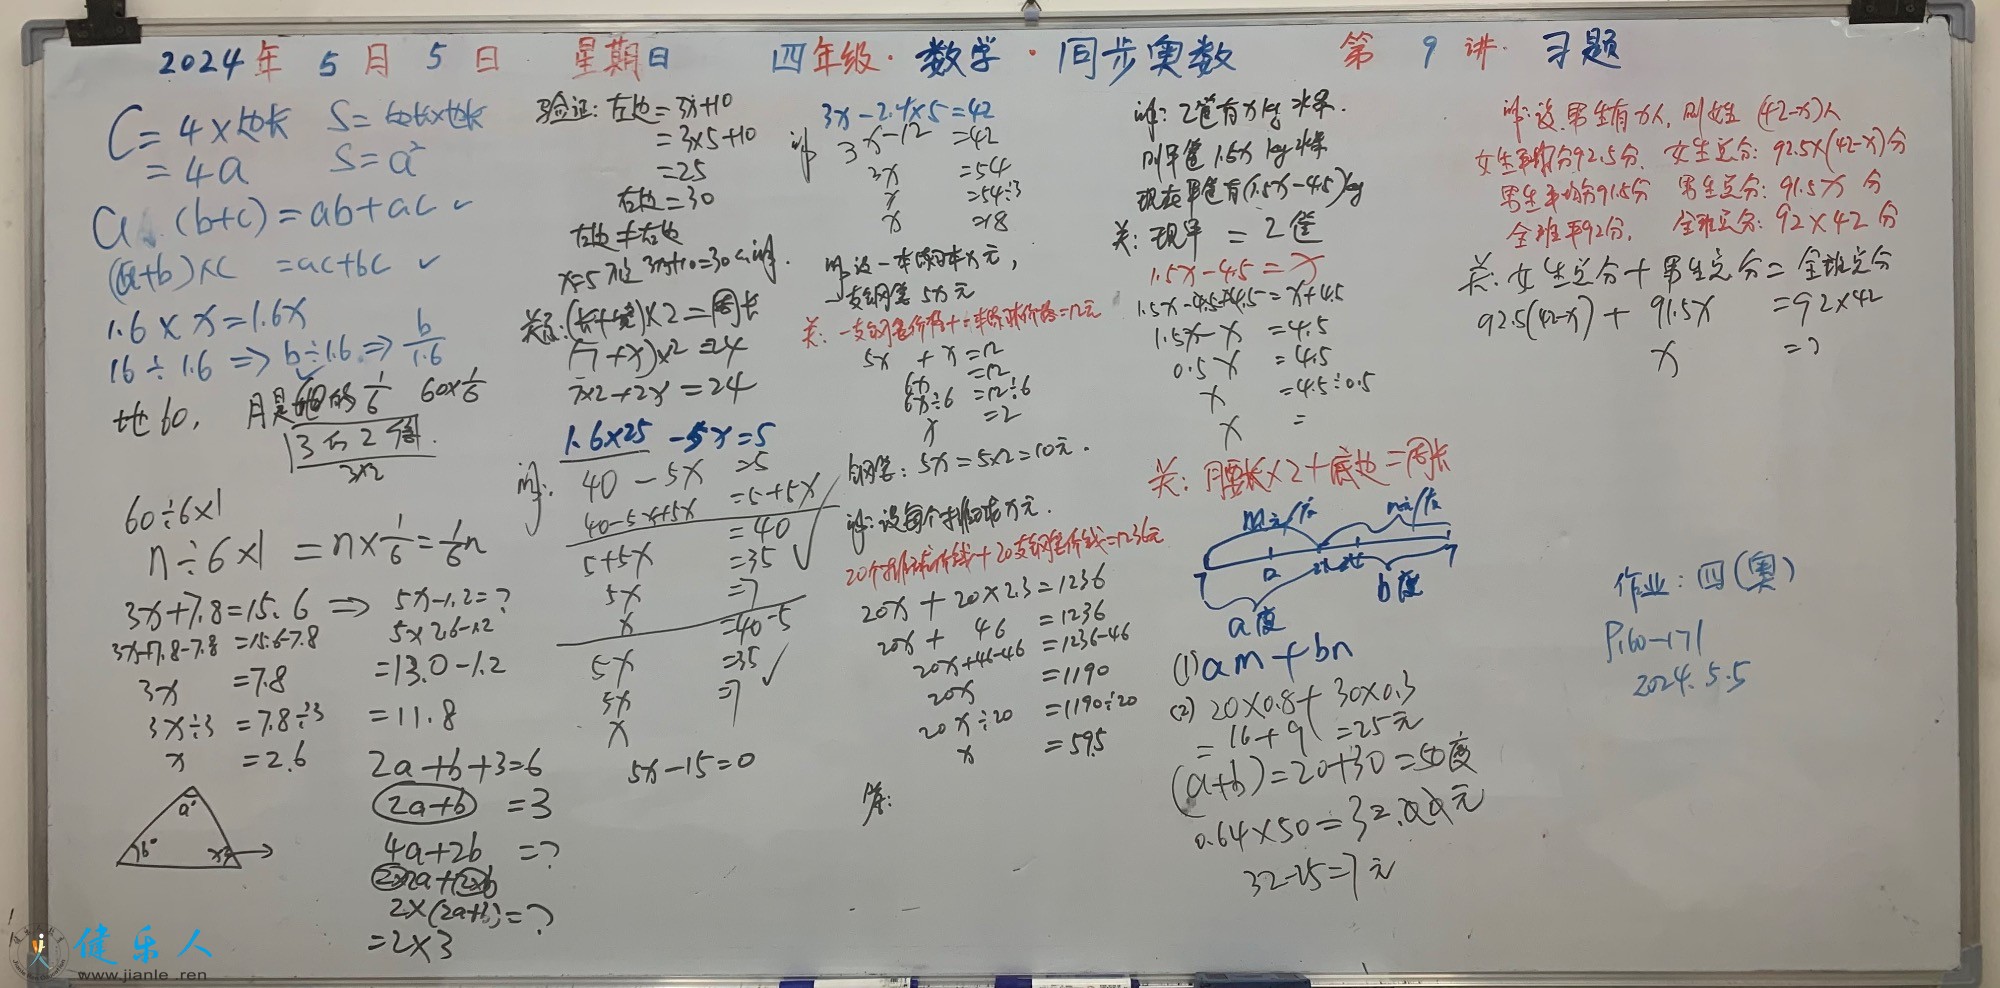 2024年 5月 5日 星期日 四年级·数学·同步奥数 第 9 讲 习题
C=4×边长 S=边长×边长
=4a S=a²
a (b+c)=ab+ac ✓
(a+b)×c =ac+bc ✓
1.6×x=1.6x
16÷1.6⇒b÷1.6⇒b/1.6
地60, 月是地的1/6 60×1/6
3的2倍
3×2
60÷6×1
n÷6×1 =n×1/6=1/6n
3x+7.8=15.6 ⇒ 5x-1.2=?
3x+7.8-7.8 =15.6-7.8 5×2.6-1.2
3x =7.8 =13.0-1.2
3x÷3 =7.8÷3 =11.8
x =2.6
a°
b°
x°
2a+b+3=6
2a+b =3
4a+2b =?
2×2a+2×b
2×(2a+b)=?
=2×3
验证:左边=3x+10
=3×5+10
=25
右边=30
左边≠右边
x=5不是3x+10=30的解.
关系:(长+宽)×2=周长
(7+x)×2=24
7×2+2x=24
1.6×25 -5x=5
解: 40-5x =5
40-5x+5x =5+5x
=40
5+5x =35
5x =7
x =40-5
5x =35
5x =7
x
5x-15=0
3x-2.4×5=42
解 3x-12 =42
3x =54
x =54÷3
x =18
解设一本练习本x元,
一支钢笔 5x元
关:一支钢笔价格+一本练习本价格=12元
5x + x=12
6x =12
6x÷6 =12÷6
x =2
钢笔:5x=5×2=10元.
解:设每个排球x元.
20个排球价钱+20支钢笔价钱=1236元
20x+20×2.3=1236
20x+ 46 =1236
20x+46-46 =1236-46
20x =1190
20x÷20 =1190÷20
x =59.5
答:
解:乙筐有xkg水果.
则甲筐1.5x kg水果
现在甲筐有(1.5x-4.5)kg
关:现甲 = 乙筐
1.5x-4.5=x
1.5x-4.5+4.5=x+4.5
1.5x-x =4.5
0.5x =4.5
x =4.5÷0.5
x =
关:腰长×2+底边=周长
m元/度 n元/度
a度 b度
(1)am+bn
(2) 20×0.8+30×0.3
=16+9 =25元
(a+b)=20+30=50度
0.64×50=32.00元
32-25=7元
解:设男生有x人,则女生(42-x)人
女生平均分92.5分, 女生总分:92.5×(42-x)分
男生平均分91.5分 男生总分:91.5x 分
全班平92分, 全班总分:92×42 分
关:女生总分+男生总分=全班总分
92.5(42-x)+ 91.5x =92×42
x =?
作业:四(奥)
P160-171
2024.5.5
健乐人
www.jianle.ren